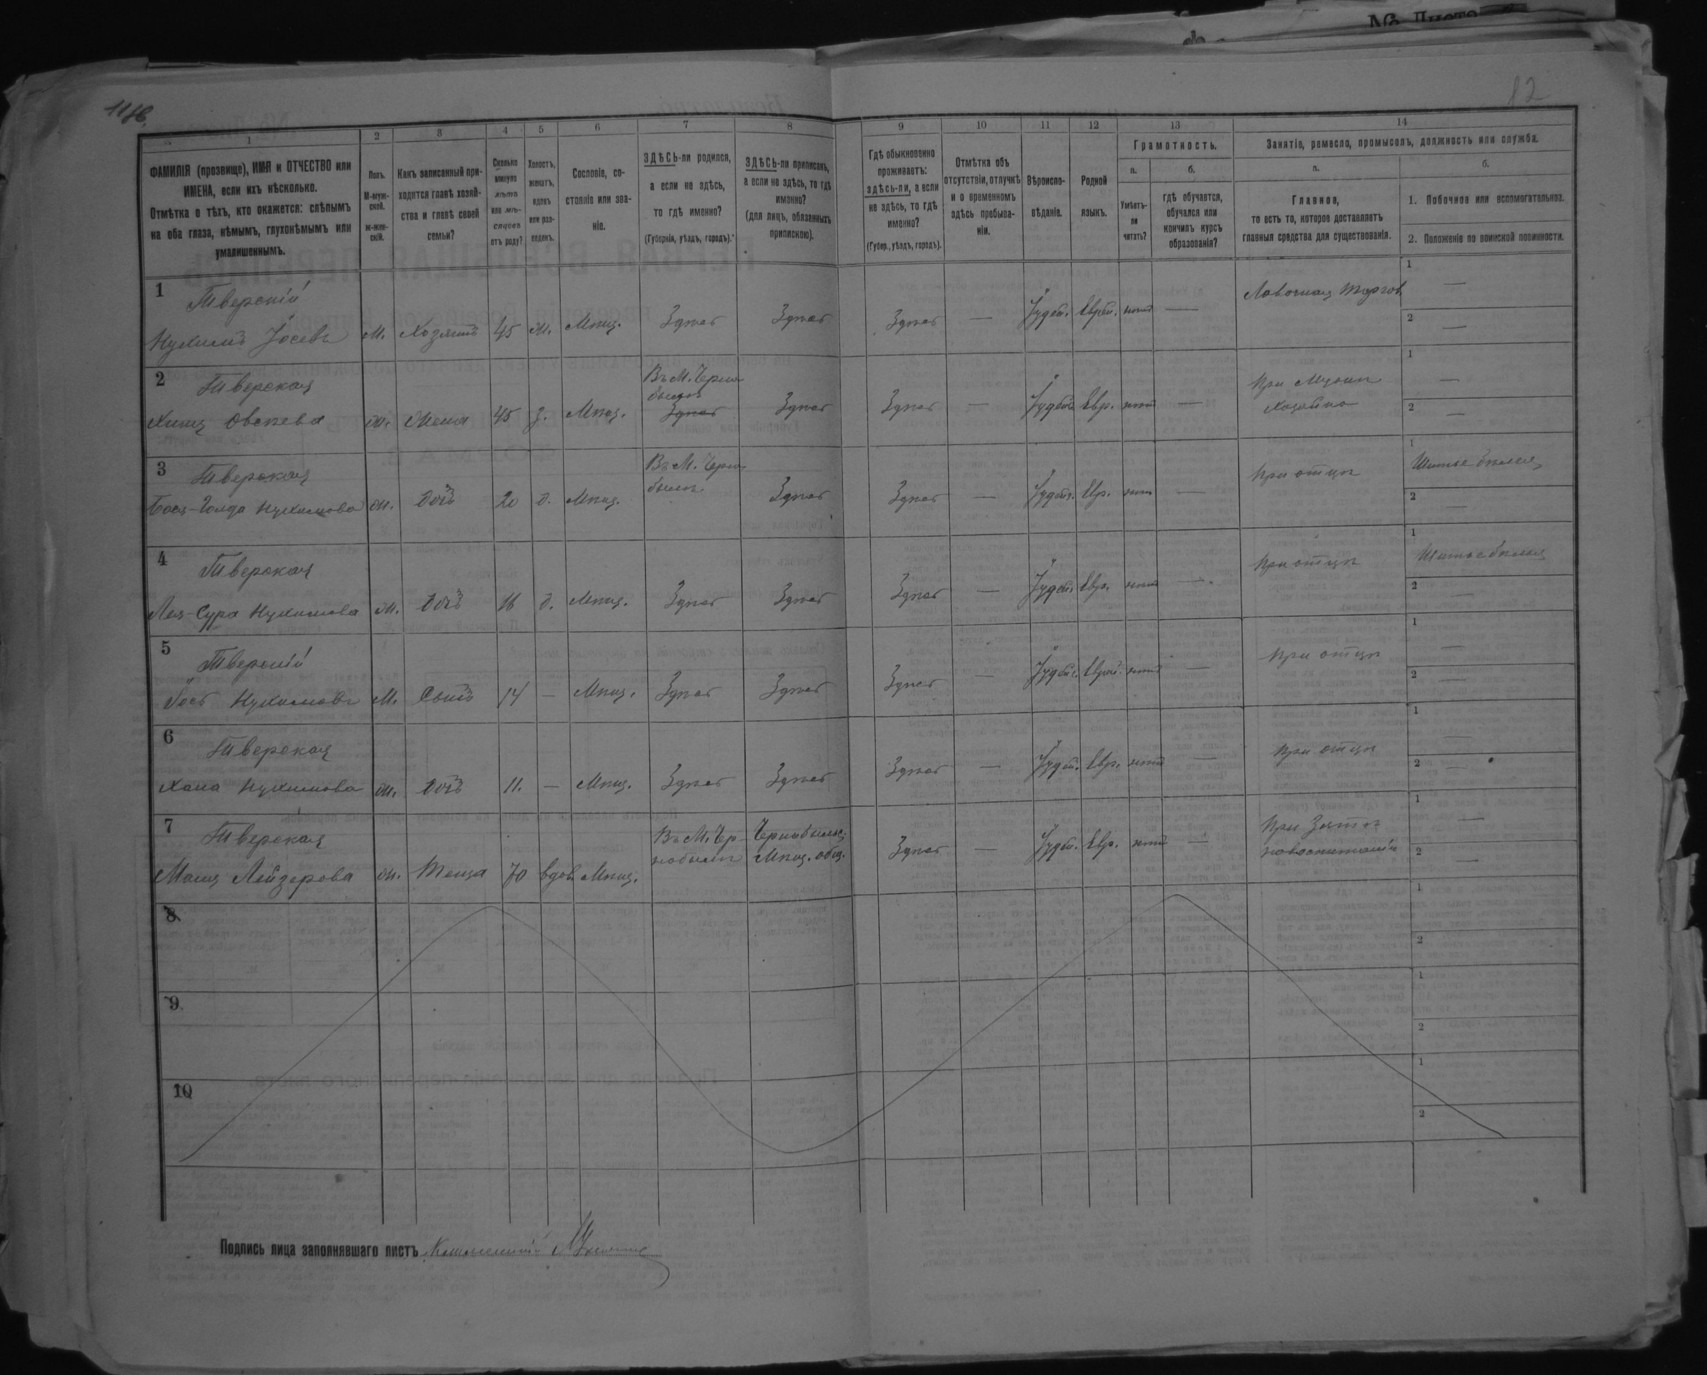 12
1
2
3
4
5
6
7
8
9
10
11
12
13
14
ФАМИЛІЯ (прозвище), ИМЯ и ОТЧЕСТВО или
ИМЕНА, если ихъ нѣсколько.
Отмѣтка о тѣхъ, кто окажется: слѣпымъ
на оба глаза, нѣмымъ, глухонѣмымъ или
умалишеннымъ.
Полъ.
М-муж-
ской.
ж-жен-
скій.
Какъ записанный при-
ходится главѣ хозяй-
ства и главѣ своей
семьи?
Сколько
минуло
лѣтъ
или мѣ-
сяцевъ
отъ роду?
Холостъ,
женатъ,
вдовъ
или раз-
веденъ.
Сословіе, со-
стояніе или зва-
ніе.
ЗДѢСЬ-ли родился,
а если не здѣсь,
то гдѣ именно?
(Губернія, уѣздъ, городъ).
ЗДѢСЬ-ли приписанъ,
а если не здѣсь, то гдѣ
именно?
(для лицъ, обязанныхъ
припискою).
Гдѣ обыкновенно
проживаетъ:
здѣсь-ли, а если
не здѣсь, то гдѣ
именно?
(Губер., уѣздъ, городъ).
Отмѣтка объ
отсутствіи, отлучкѣ
и о временномъ
здѣсь пребыва-
ніи.
Вѣроиспо-
вѣданіе.
Родной
языкъ.
Грамотность.
а.
Умѣетъ-
ли
читать?
б.
гдѣ обучается,
обучался или
кончилъ курсъ
образованія?
Занятіе, ремесло, промыселъ, должность или служба.
а.
Главное,
то есть то, которое доставляетъ
главныя средства для существованія.
б.
1. Побочное или вспомогательное.
2. Положеніе по воинской повинности.
1 Тверскій
Нухимъ Іосевъ м. Хозяинъ 45 ж. Мѣщ. Здѣсь Здѣсь Здѣсь — Іудей. Еврей. нѣтъ — Лавочная Торгов 1 — 2 —
2 Тверская
Хищ Овсѣева ж. Жена 45 з. Мѣщ. Въ М. Черно
былѣ
Здѣсь Здѣсь Здѣсь — Іудей. Евр. нѣтъ — При Мужѣ
Хозяйка 1 — 2 —
3 Тверская
Бася-Голда Нухимова ж. дочь 20 д. Мѣщ. Въ М. Черно
былѣ Здѣсь Здѣсь — Іудей. Евр. нѣтъ — При отцѣ 1 Шитье бѣлья 2 —
4 Тверская
Лея-Сура Нухимова ж. дочь 16 д. Мѣщ. Здѣсь Здѣсь Здѣсь — Іудей. Евр. нѣтъ — При отцѣ 1 Шитье бѣлья 2 —
5 Тверскій
Іось Нухимовъ м. Сынъ 14 — Мѣщ. Здѣсь Здѣсь Здѣсь — Іудей. Еврей. нѣтъ — При отцѣ 1 — 2 —
6 Тверская
Хана Нухимова ж. дочь 11. — Мѣщ. Здѣсь Здѣсь Здѣсь — Іудей. Евр. нѣтъ — При отцѣ 1 — 2 —
7 Тверская
Маищ Лейзерова ж. Теща 70 вдов Мѣщ. Въ М. Чер
нобылѣ Чернобыль
Мѣщ. общ. Здѣсь — Іудей. Евр. нѣтъ — При Зятѣ 1 — 2 —
8 1 2
9 1 2
10 1 2
Подпись лица заполнявшаго листъ